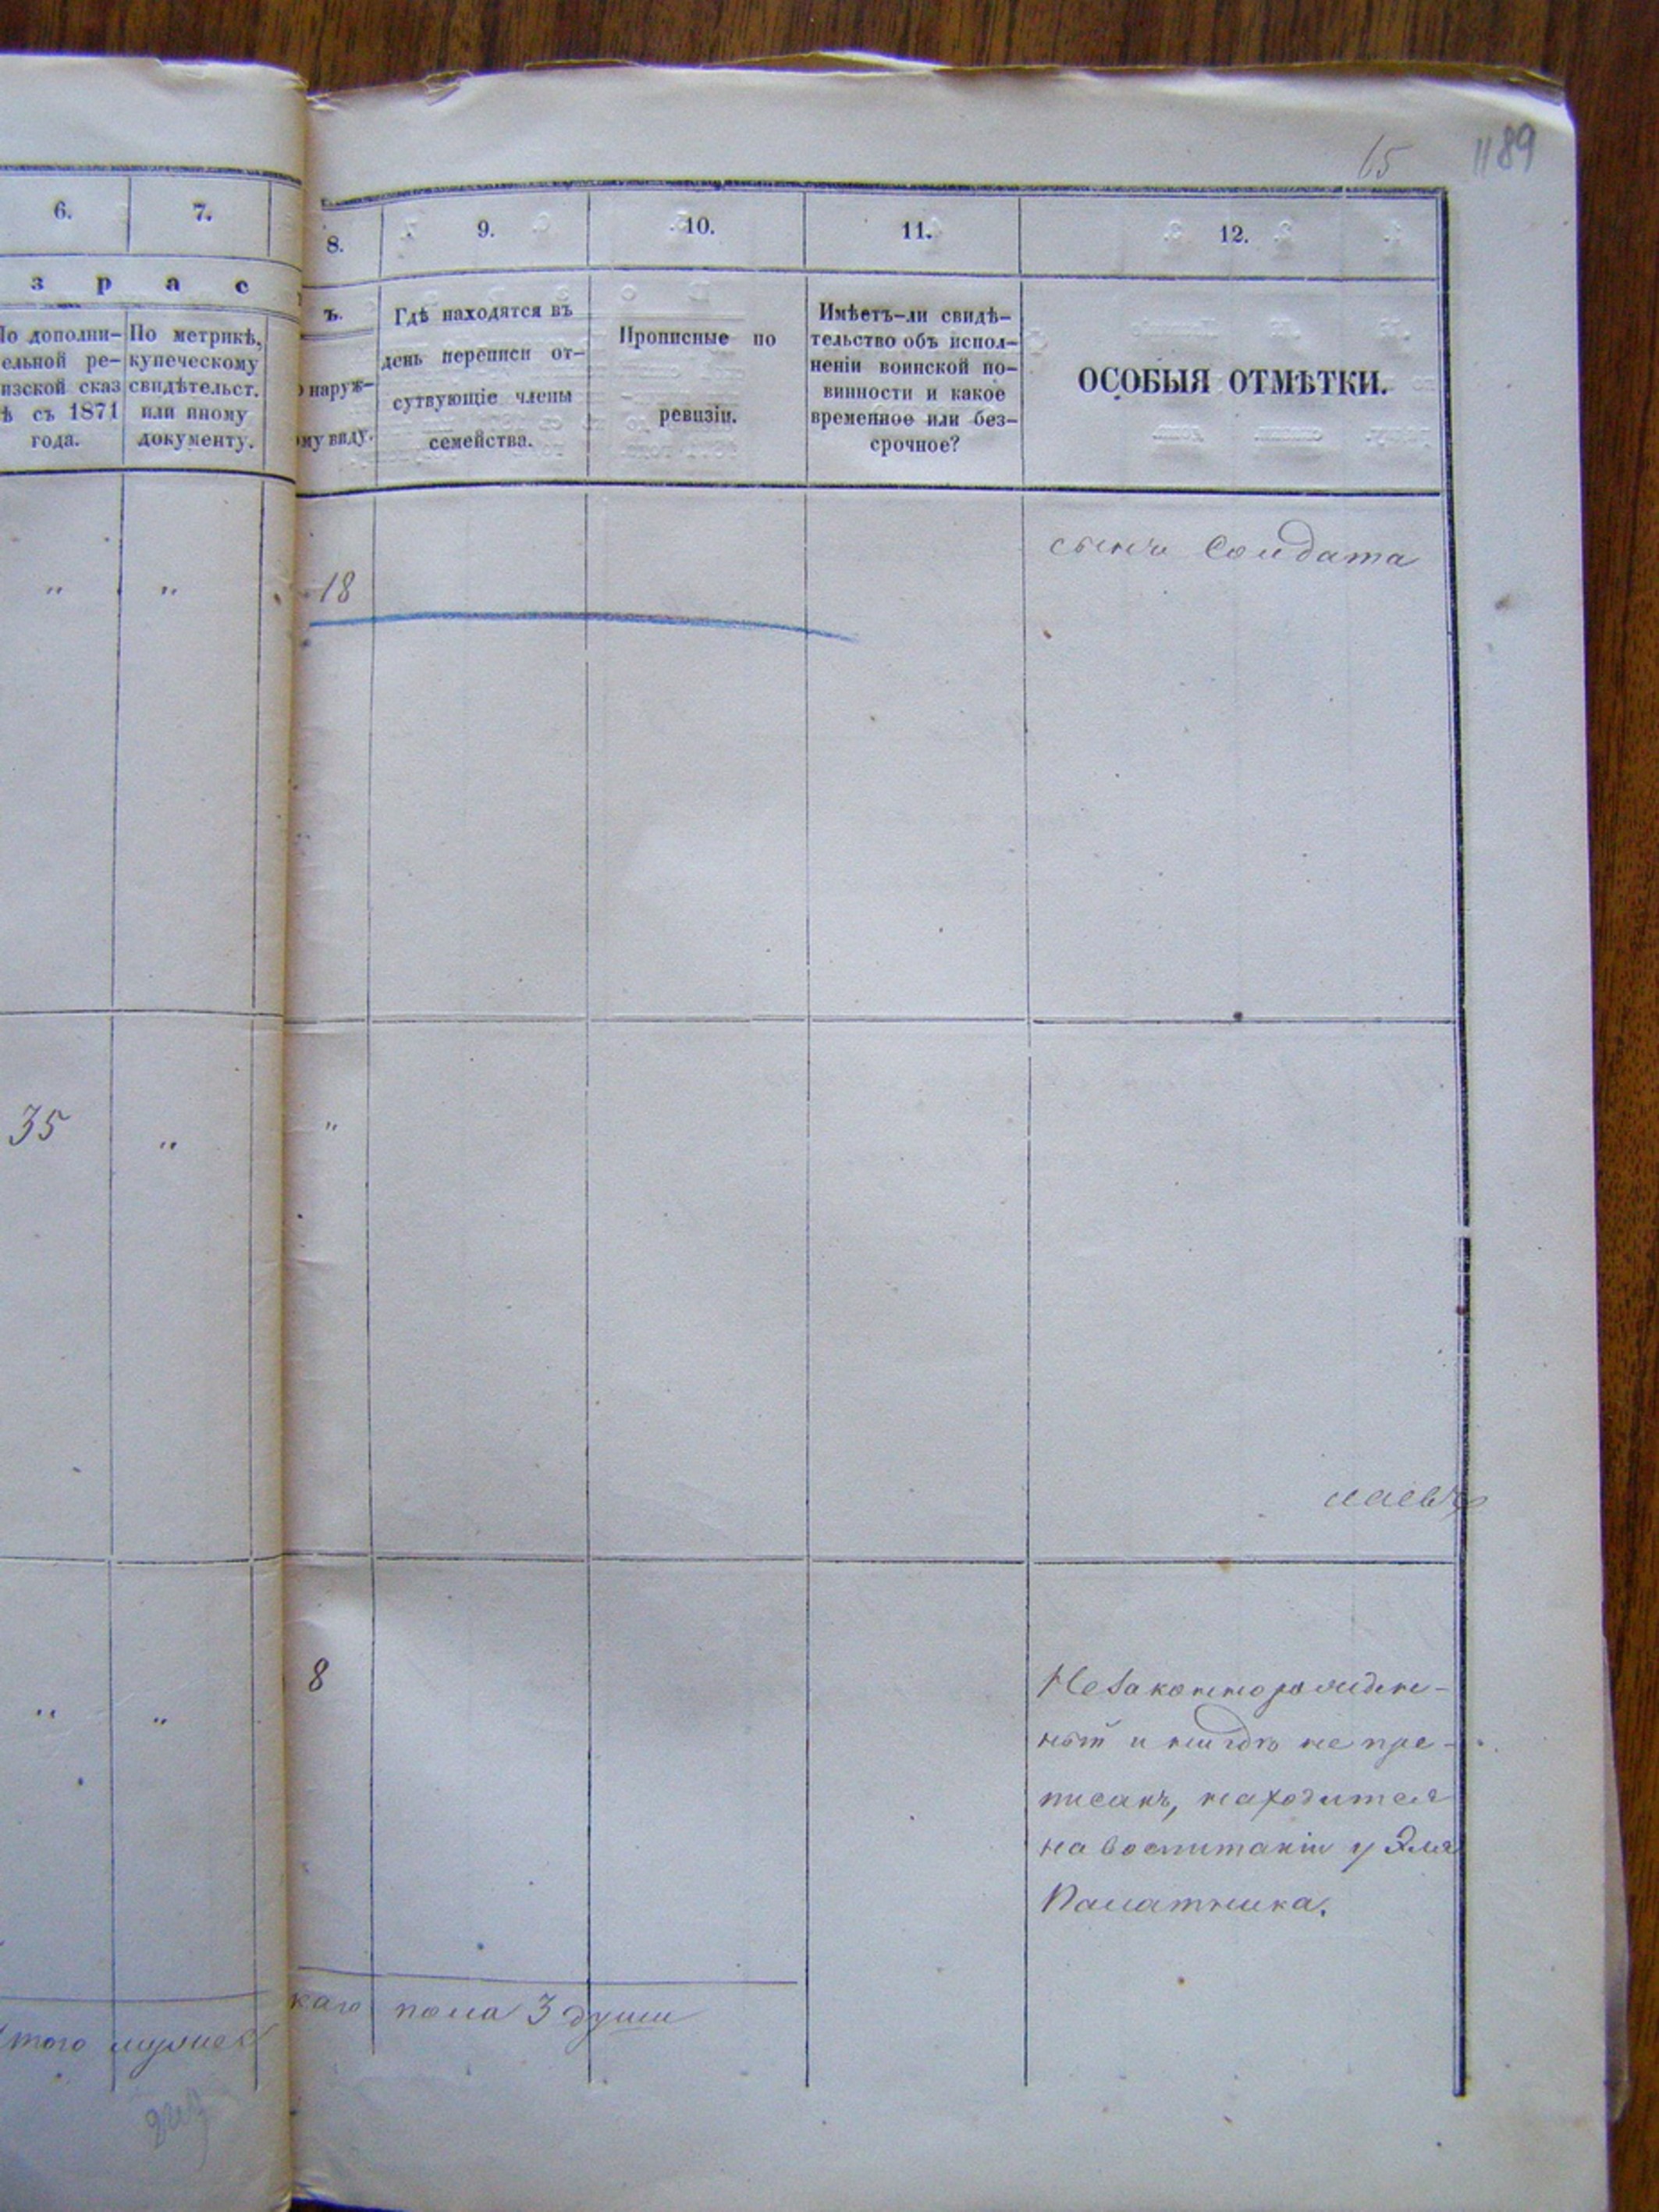 65 1189
6. 7.
8. 9. 10. 11. 12.
з р а с
ъ.
По дополни- По метрикѣ,
ельной ре- купеческому
изской сказ свидѣтельст.
ѣ съ 1871 или иному
года. документу.
о наруж-
му виду.
Гдѣ находятся въ
день переписи от-
сутвующіе члены
семейства.
Прописные по
ревизіи.
Имѣетъ-ли свидѣ-
тельство объ испол-
неніи воинской по-
винности и какое
временное или без-
срочное?
ОСОБЫЯ ОТМѢТКИ.
" " 18 сынъ Солдата
35 " "
" " 8
Незаконнорожден-
ный и нигдѣ не при-
писанъ, находится
на воспитаніи у Эля
Палатника.
того мужескаго пола 3 души